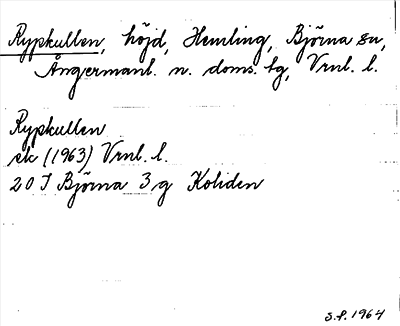 Rypkullen, höjd, Hemling, Björna sn,
Ångermanl. n. doms. tg, Vrnl. l.
Rypkullen
ek (1963) Vrnl. l.
20 I Björna 3 g Koliden
S.P. 1964